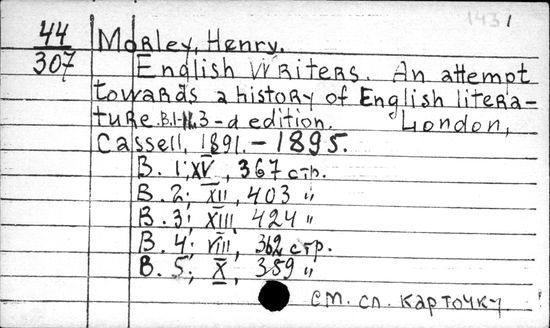 1431
44
307
Morley, Henry.
English Writers. An attempt
towards a history of English litera-
ture. B.1-11. 3-d edition. London,
Cassell, 1891. – 1895.
B. 1; XV, 367 стр.
B. 2; XII, 403 "
B. 3; XIII, 424 "
B. 4; VIII, 362 стр.
B. 5; X, 359 "
см. сл. карточку